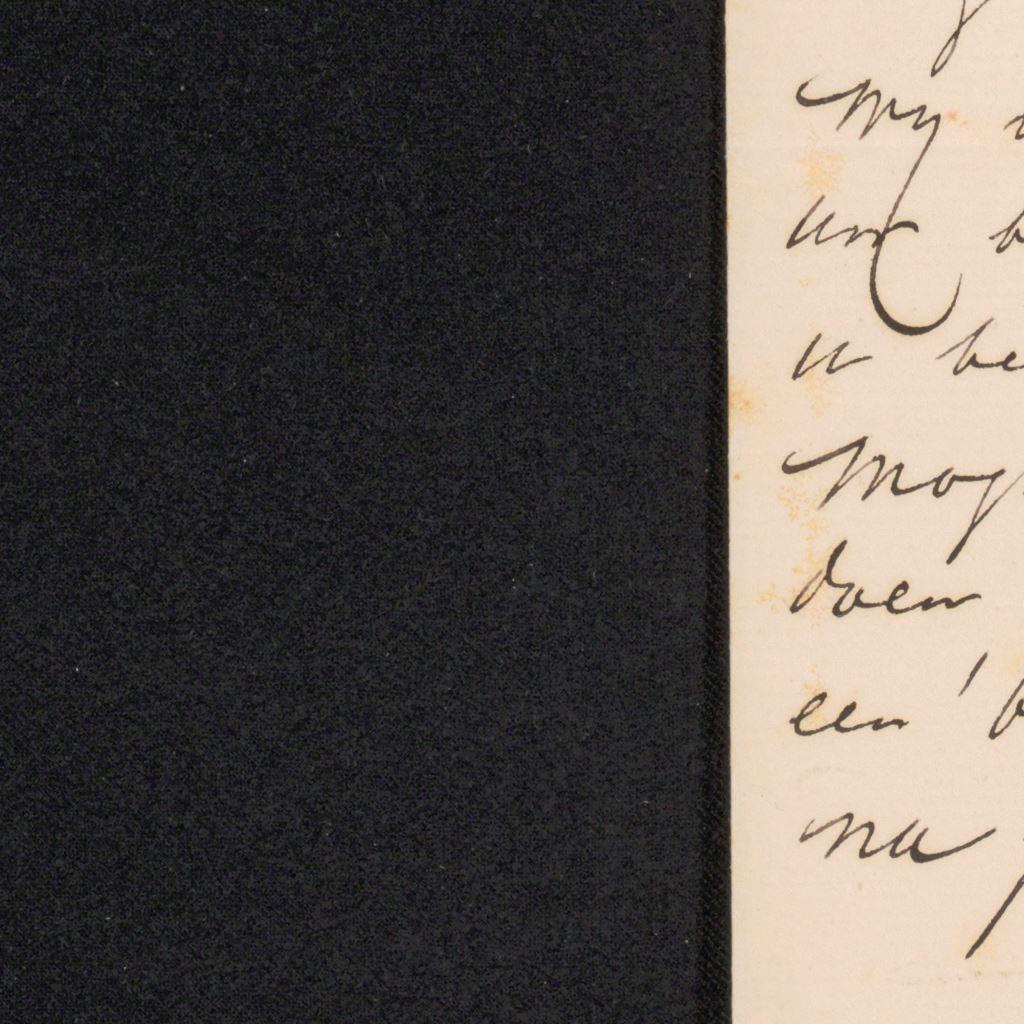 my
uw b
u be
mog
doen
een' b
na